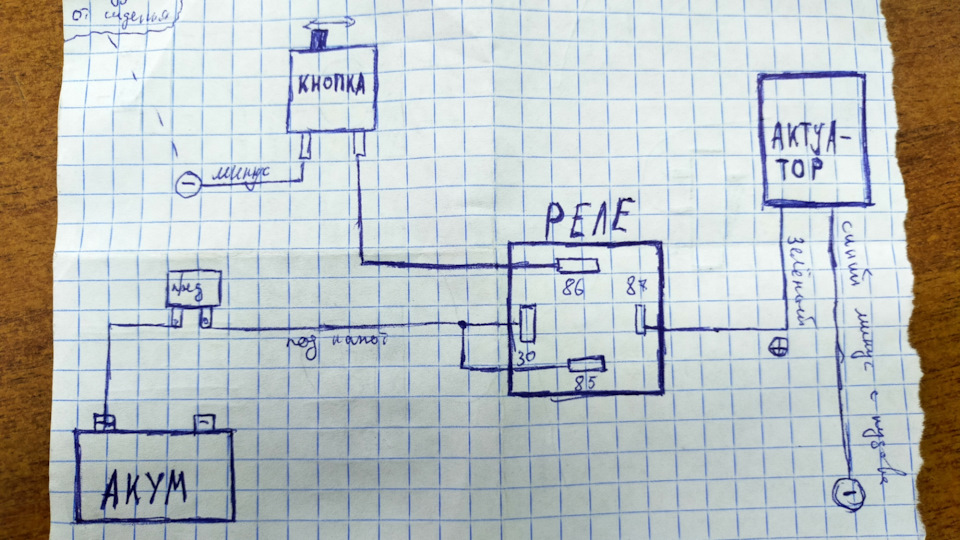 от сиденья
КНОПКА
минус
АКТУА-
ТОР
РЕЛЕ
86
87
30
85
пред
под капот
зелёный
синий минус с кузова
+
-
АКУМ